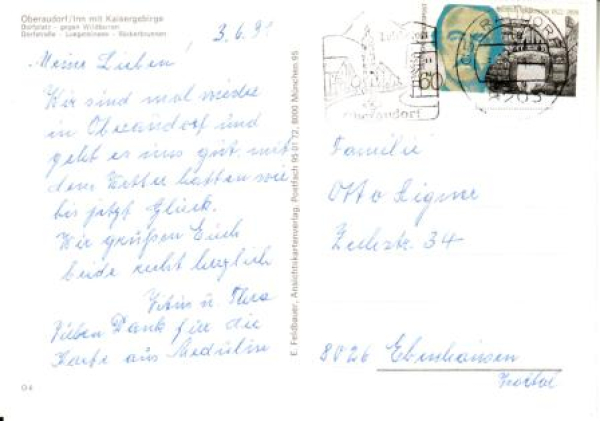 Oberaudorf/Inn mit Kaisergebirge
Dorfplatz - gegen Wildbarren
Dorfstraße - Luegsteinsee - Bäckerbrunnen
3.6.91
Meine Lieben!
Wir sind mal wieder
in Oberaudorf und
geht es uns gut, mit
dem Wetter hatten wir
bis jetzt Glück.
Wir grüßen Euch
beide recht herzlich
u.
Vielen Dank für die
Karte aus Medulin
04
E. Feldbauer, Ansichtskartenverlag, Postfach 95 01 72, 8000 München 95
60
Oberaudorf
Familie
Otto
34
8026 Ebenhausen
Isartal